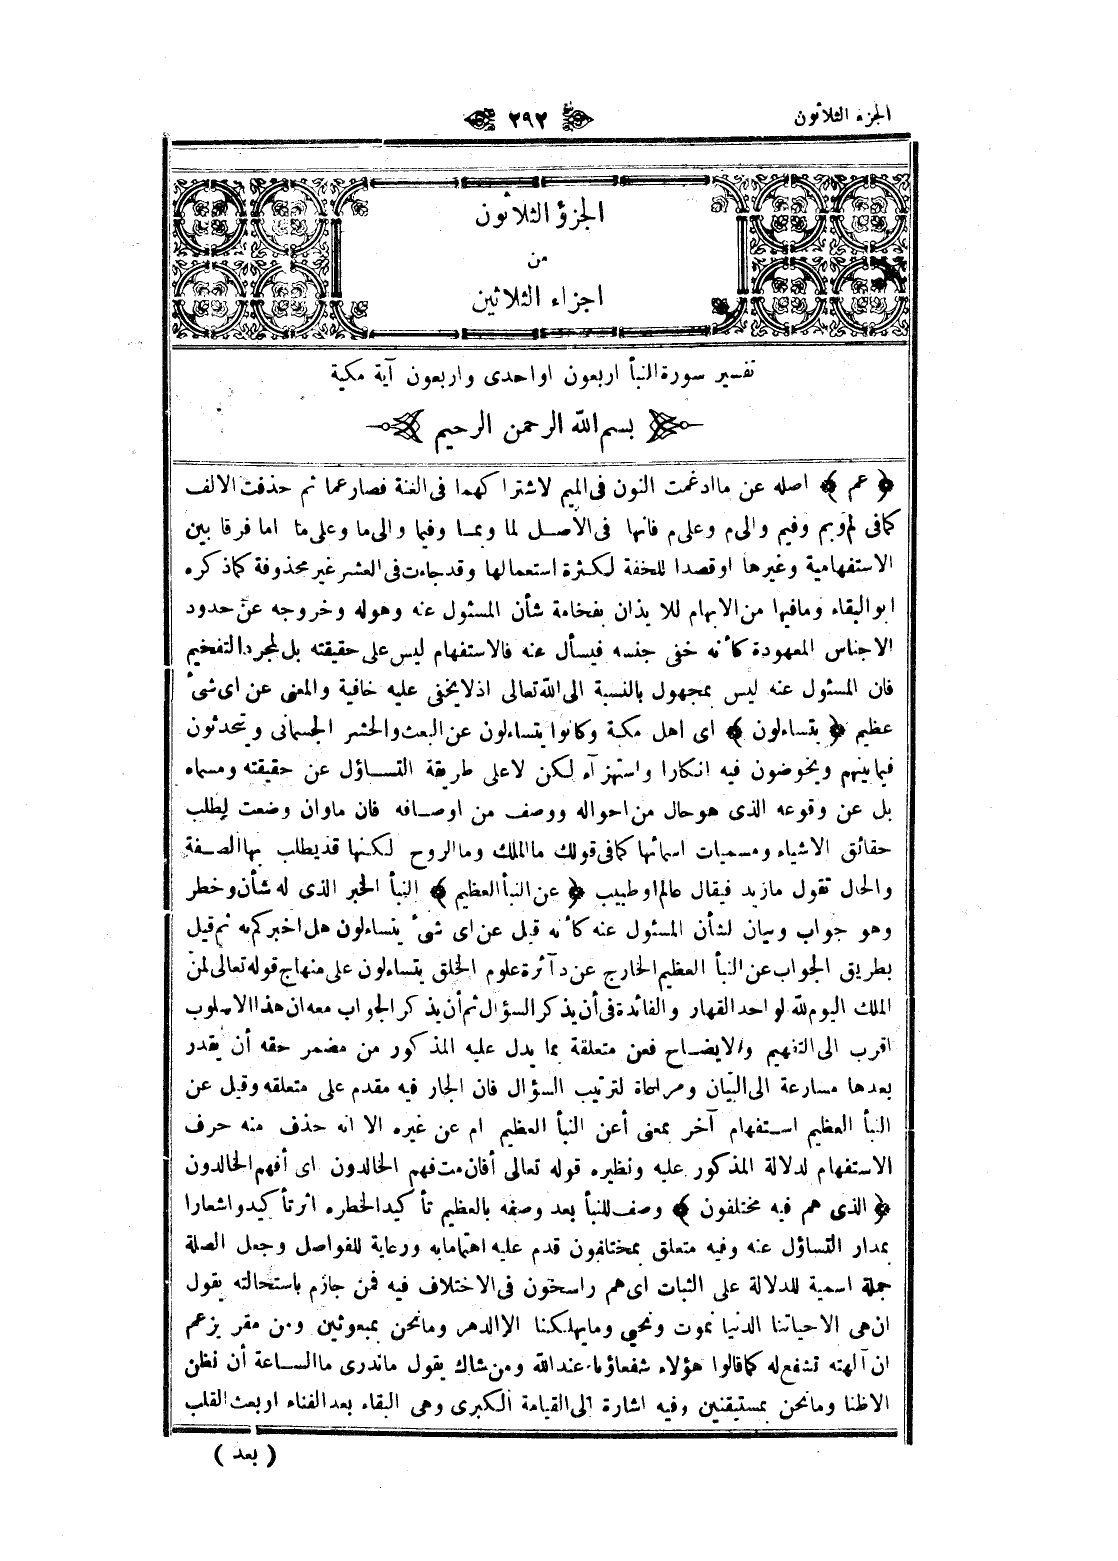 الجزء الثلاثون
٢٩٢
الجزؤ الثلاثون
من
اجزاء الثلاثين
تفسير سورة النبأ اربعون او احدى واربعون آية مكية
بسم الله الرحمن الرحيم
﴿ عم ﴾ اصله عن ما ادغمت النون فى الميم لاشتراكهما فى الغنة فصار عما ثم حذفت الالف
كما فى لم وبم وفيم والى م وعلى م فانها فى الاصل لما وبما وفيما والى ما وعلى ما اما فرقا بين
الاستفهامية وغيرها او قصدا للخفة لكثرة استعمالها وقد جاءت فى العشر غير محذوفة كما ذكره
ابو البقاء وما فيها من الابهام للايذان بفخامة شأن المسئول عنه وهوله وخروجه عن حدود
الاجناس المعهودة كأنه خفى جنسه فيسأل عنه فالاستفهام ليس على حقيقته بل لمجرد التفخيم
فان المسئول عنه ليس بمجهول بالنسبة الى الله تعالى اذ لا يخفى عليه خافية والمعنى عن اى شىء
عظيم ﴿ يتساءلون ﴾ اى اهل مكة وكانوا يتساءلون عن البعث والحشر الجسمانى ويتحدثون
فيما بينهم ويخوضون فيه انكارا واستهزآء لكن لا على طريقة التساؤل عن حقيقته ومسماه
بل عن وقوعه الذى هو حال من احواله ووصف من اوصافه فان ما وان وضعت لطلب
حقائق الاشياء ومسميات اسمائها كما فى قولك ما الملك وما الروح لكنها قد يطلب بها الصفة
والحال تقول ما زيد فيقال عالم او طبيب ﴿ عن النبأ العظيم ﴾ النبأ الخبر الذى له شأن وخطر
وهو جواب وبيان لشأن المسئول عنه كأنه قيل عن اى شىء يتساءلون هل اخبركم به ثم قيل
بطريق الجواب عن النبأ العظيم الخارج عن دآئرة علوم الخلق يتساءلون على منهاج قوله تعالى لمن
الملك اليوم لله الواحد القهار والفائدة فى أن يذكر السؤال ثم أن يذكر الجواب معه ان هذا الاسلوب
اقرب الى التفهيم والايضاح فعن متعلقة بما يدل عليه المذكور من مضمر حقه أن يقدر
بعدها مسارعة الى البيان ومراعاة لترتيب السؤال فان الجار فيه مقدم على متعلقه وقيل عن
النبأ العظيم استفهام آخر بمعنى أعن النبأ العظيم ام عن غيره الا انه حذف منه حرف
الاستفهام لدلالة المذكور عليه ونظيره قوله تعالى أفان مت فهم الخالدون اى أفهم الخالدون
﴿ الذى هم فيه مختلفون ﴾ وصف للنبأ بعد وصفه بالعظيم تأكيدا لخطره اثر تأكيد واشعارا
بمدار التساؤل عنه وفيه متعلق بمختلفون قدم عليه اهتماما به ورعاية للفواصل وجعل الصلة
جملة اسمية للدلالة على الثبات اى هم راسخون فى الاختلاف فيه فمن جازم باستحالته يقول
ان هى الا حياتنا الدنيا نموت ونحيى وما يهلكنا الا الدهر وما نحن بمبعوثين ومن مقر يزعم
ان آلهته تشفع له كما قالوا هؤلاء شفعاؤنا عند الله ومن شاك يقول ما ندرى ما الساعة أن نظن
الا ظنا وما نحن بمستيقنين وفيه اشارة الى القيامة الكبرى وهى البقاء بعد الفناء او بعث القلب
( بعد )